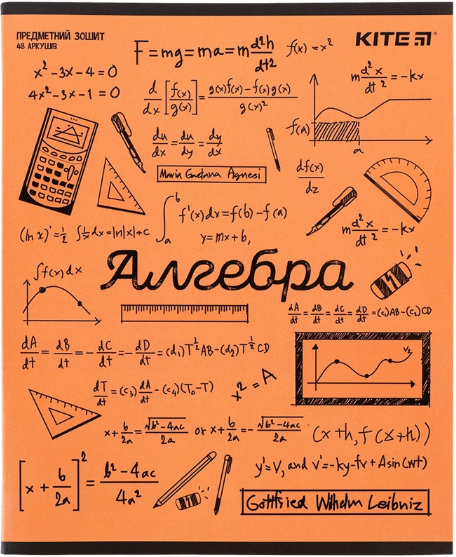 ПРЕДМЕТНИЙ ЗОШИТ
48 АРКУШІВ
KITE
F = mg = ma = m d²h/dt²
f(x) = x²
x² - 3x - 4 = 0
4x² - 3x - 1 = 0
d/dx [f(x)/g(x)] = g(x)f(x) - f(x)g(x)/g(x)²
m d²x/dt² = -kx
du/dx = du/dy = dy/dx
f(a)
a
Maria Gaetana Agnesi
df(x)
dz
∫ₐᵇ f'(x)dx = f(b) - f(a)
y = mx + b,
m d²x/dt² = -kx
(ln x)' = 1/x ∫1/x dx = ln|x| + c
Алгебра
∫f(x)dx
dA/dt = dB/dt = dC/dt = dD/dt = (c₁)AB - (c₂)CD
dA/dt = dB/dt = -dC/dt = -dD/dt = (d₁)T^½AB - (d₂)T^½CD
v₂
dT/dt = (c₃) dA/dt - (c₄)(T₀ - T)
x² = A
x + b/2a = √b² - 4ac/2a or x + b/2a = - √b² - 4ac/2a
(x+h, f(x+h))
[x + b/2a]² = b² - 4ac/4a²
y' = v, and v' = -ky - fv + A sin(wt)
Gottfried Wilhelm Leibniz